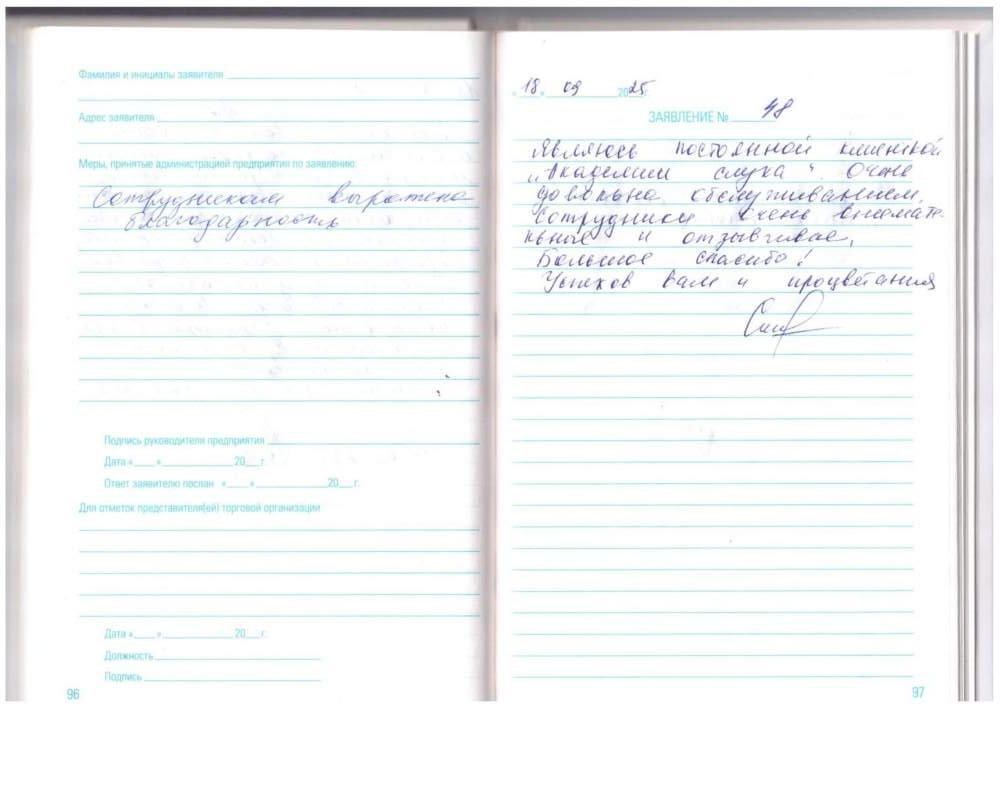 Фамилия и инициалы заявителя
Адрес заявителя
Меры, принятые администрацией предприятия по заявлению:
Сотрудникам выражена
благодарность
Подпись руководителя предприятия
Дата « » 20 г.
Ответ заявителю послан « » 20 г.
Для отметок представителя(ей) торговой организации
Дата « » 20 г.
Должность
Подпись
96
« 18 » 09 2025 г.
ЗАЯВЛЕНИЕ № 48
Являюсь постоянной клиенткой
„Академии слуха“. Очень
довольна обслуживанием.
Сотрудники очень внимате-
льные и отзывчивые.
Большое спасибо!
Успехов Вам и процветания
97